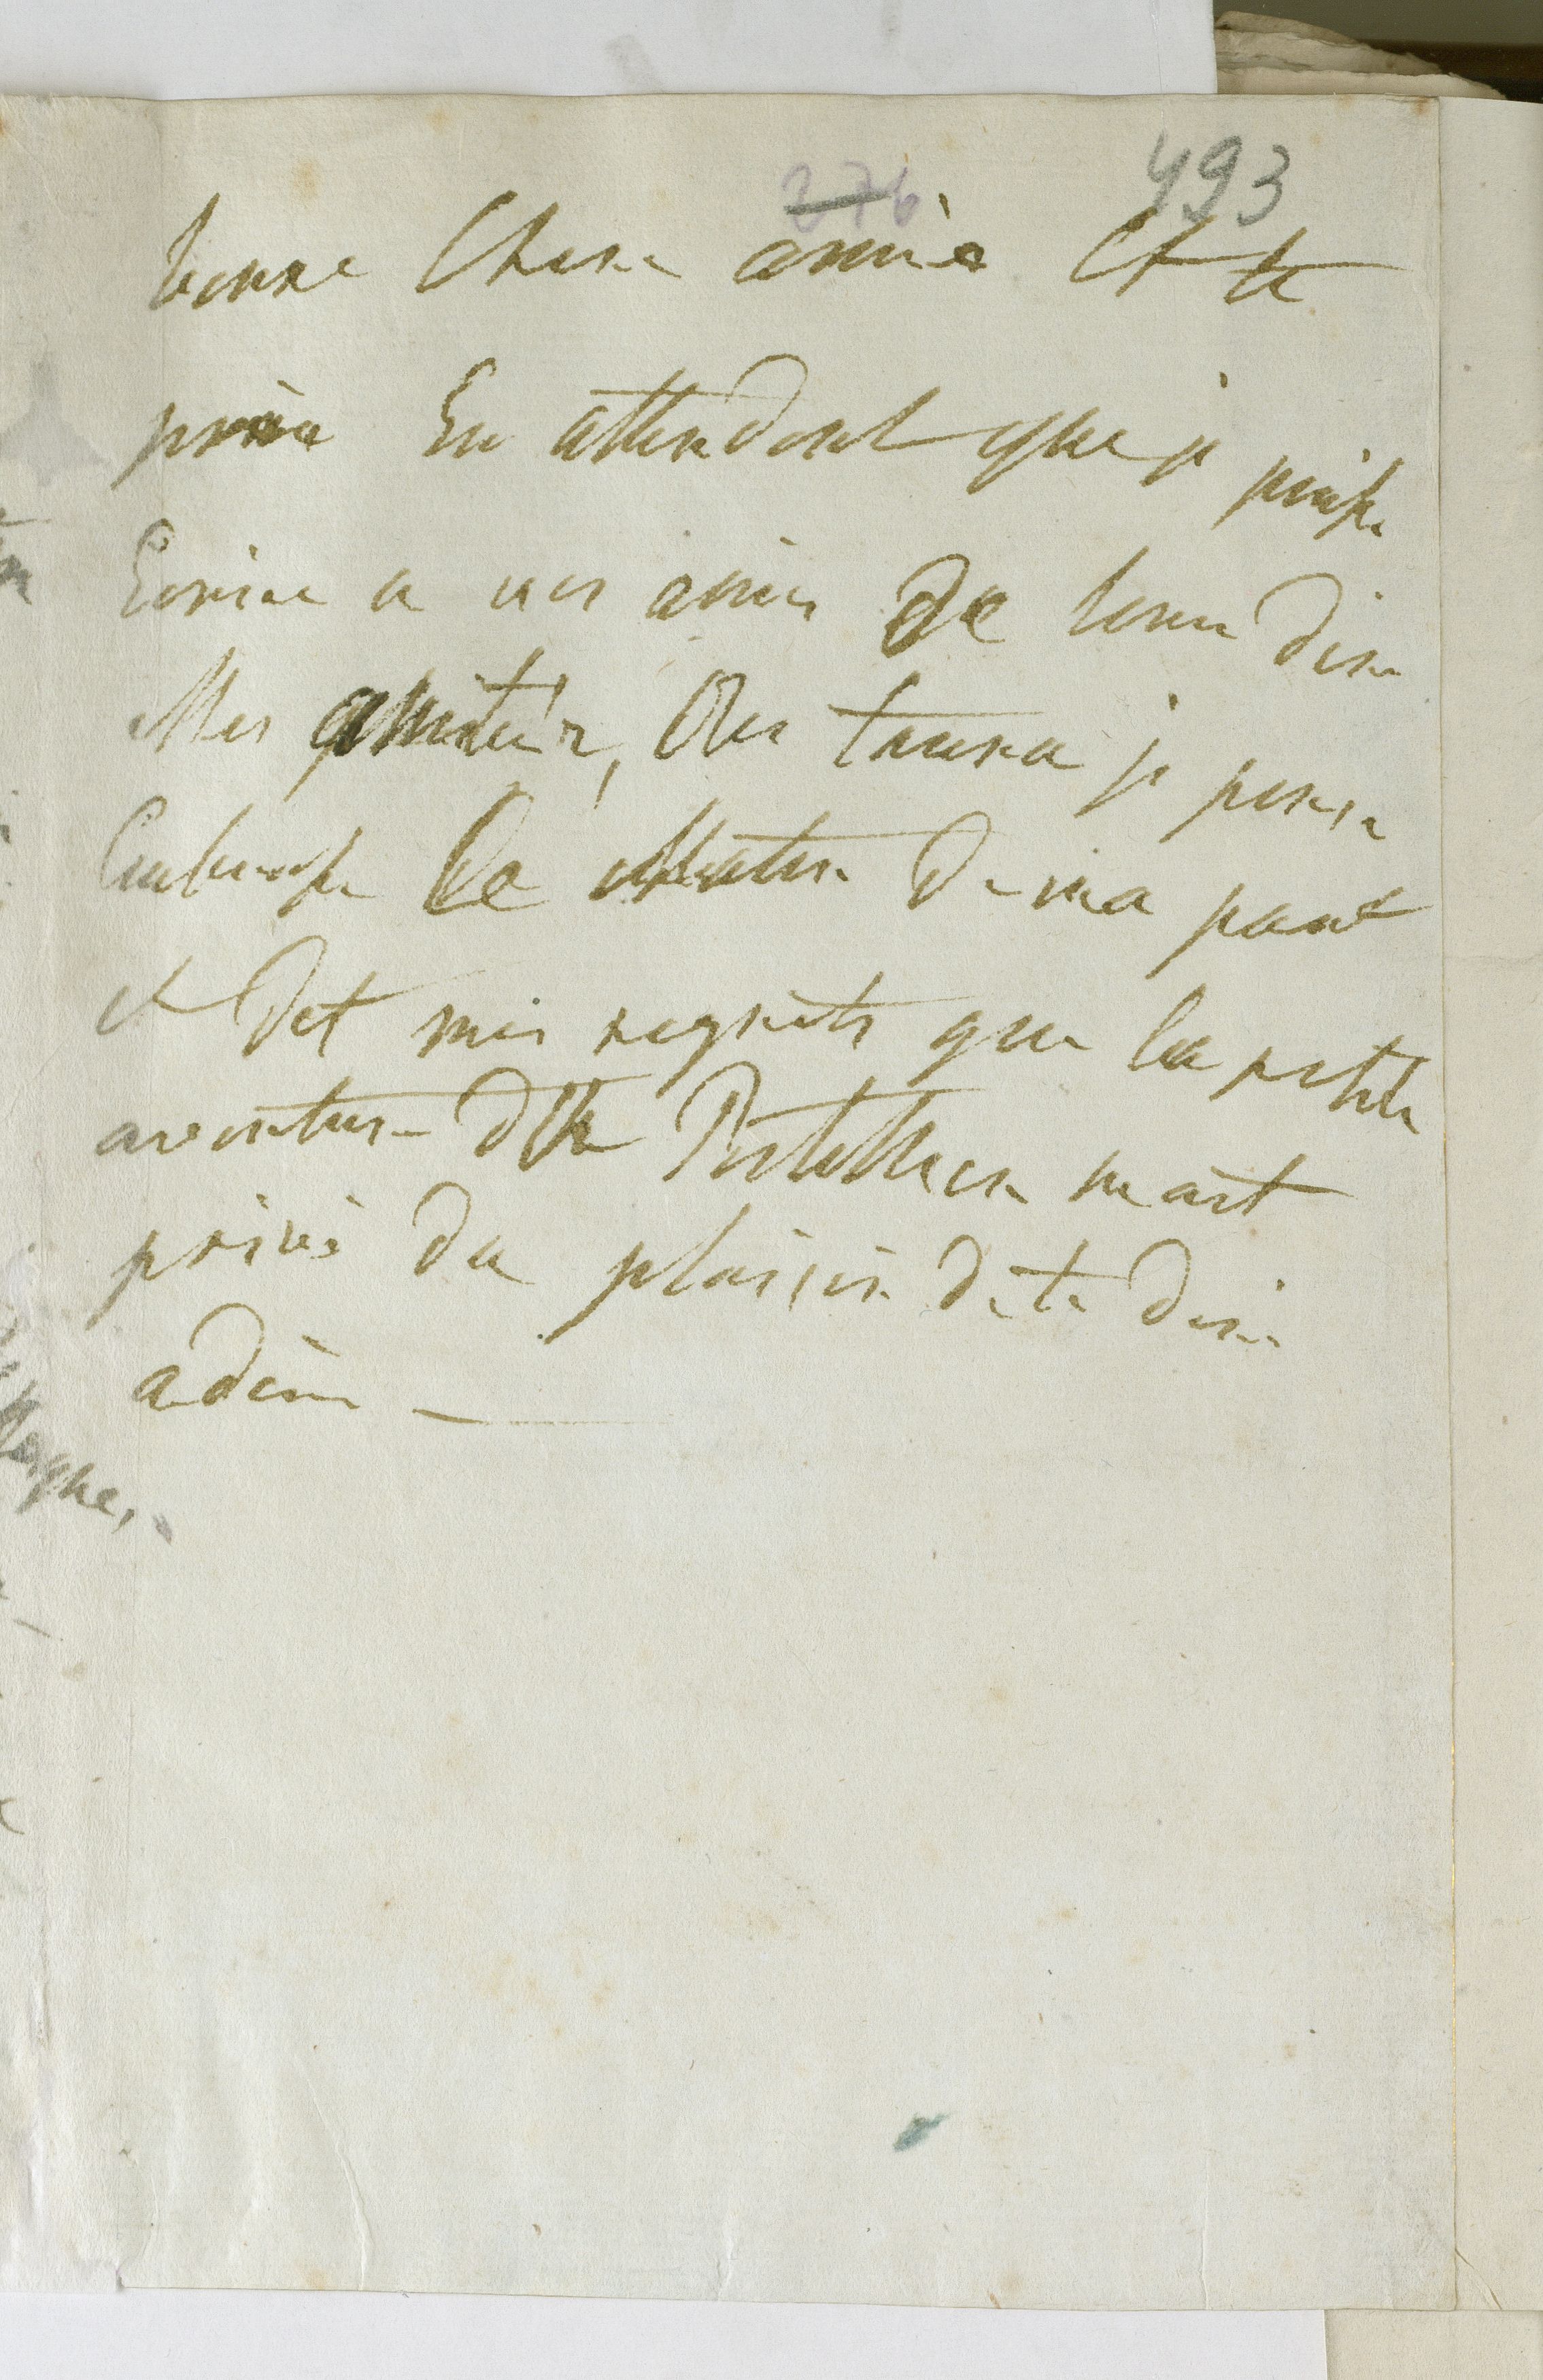 276 493
bonne Chere amie Et te
prie En attendant que je puisse
Ecrire a nos amis de leur dire
Mes amitiés, On trouve je pense
Embrasse de ma part
et dit mes regrets que la petite
aventure de m'ait
privé du plaisir de te dire
adieu —